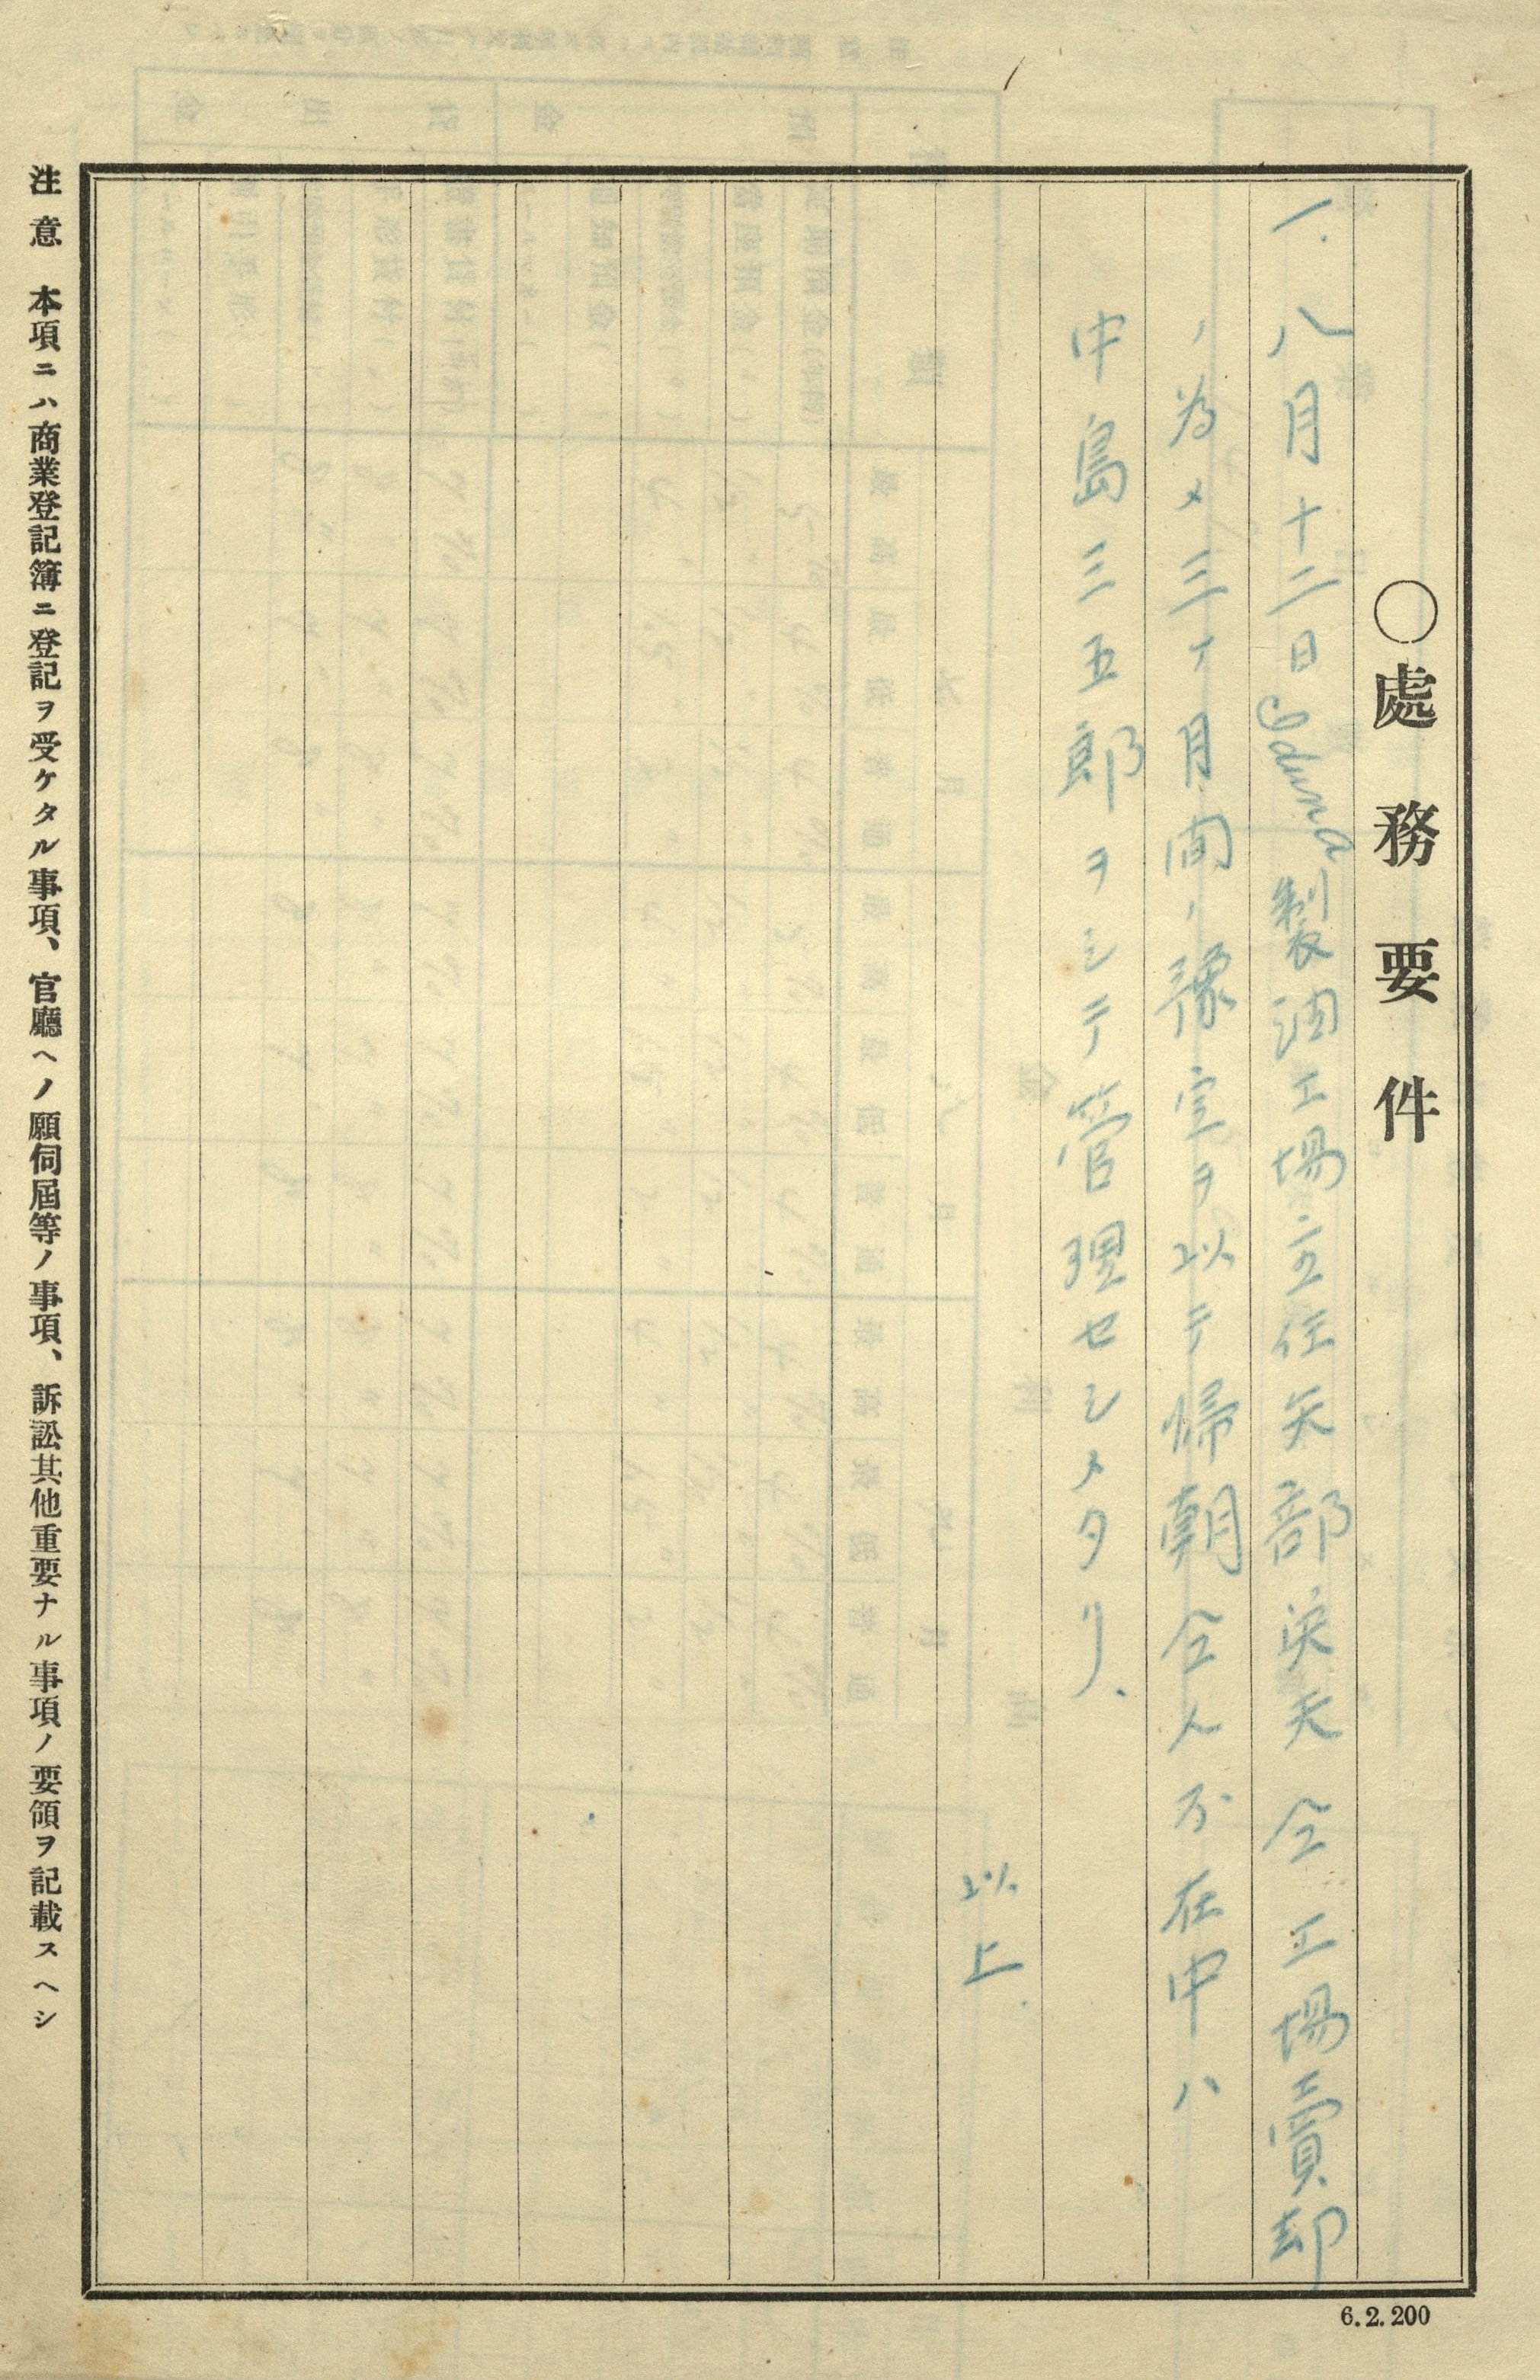 〇處務要件
一、八月十二日Eduna製油工場主任矢部淡夫仝工場賣却
ノ為メ三ヶ月間ノ豫定ヲ以テ帰朝仝人不在中ハ
中島三五郎ヲシテ管理セシメタリ、
以上、
注意 本項ニハ商業登記簿ニ登記ヲ受ケタル事項、官廳ヘノ願伺屆等ノ事項、訴訟其他重要ナル事項ノ要領ヲ記載スヘシ
6.2.200